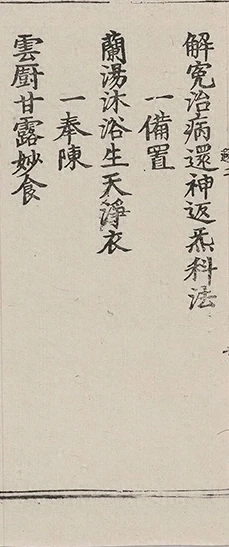 解冤治病還神返炁科法
一備置
蘭湯沐浴生天淨衣
一奉陳
雲厨甘露妙食